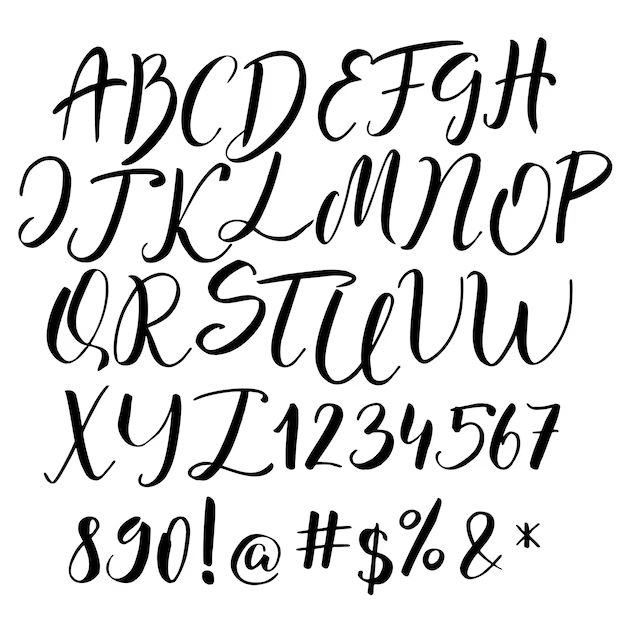 ABCDEFGH
IJKLMNOP
QRSTUVW
XYZ1234567
890!@#$%&*